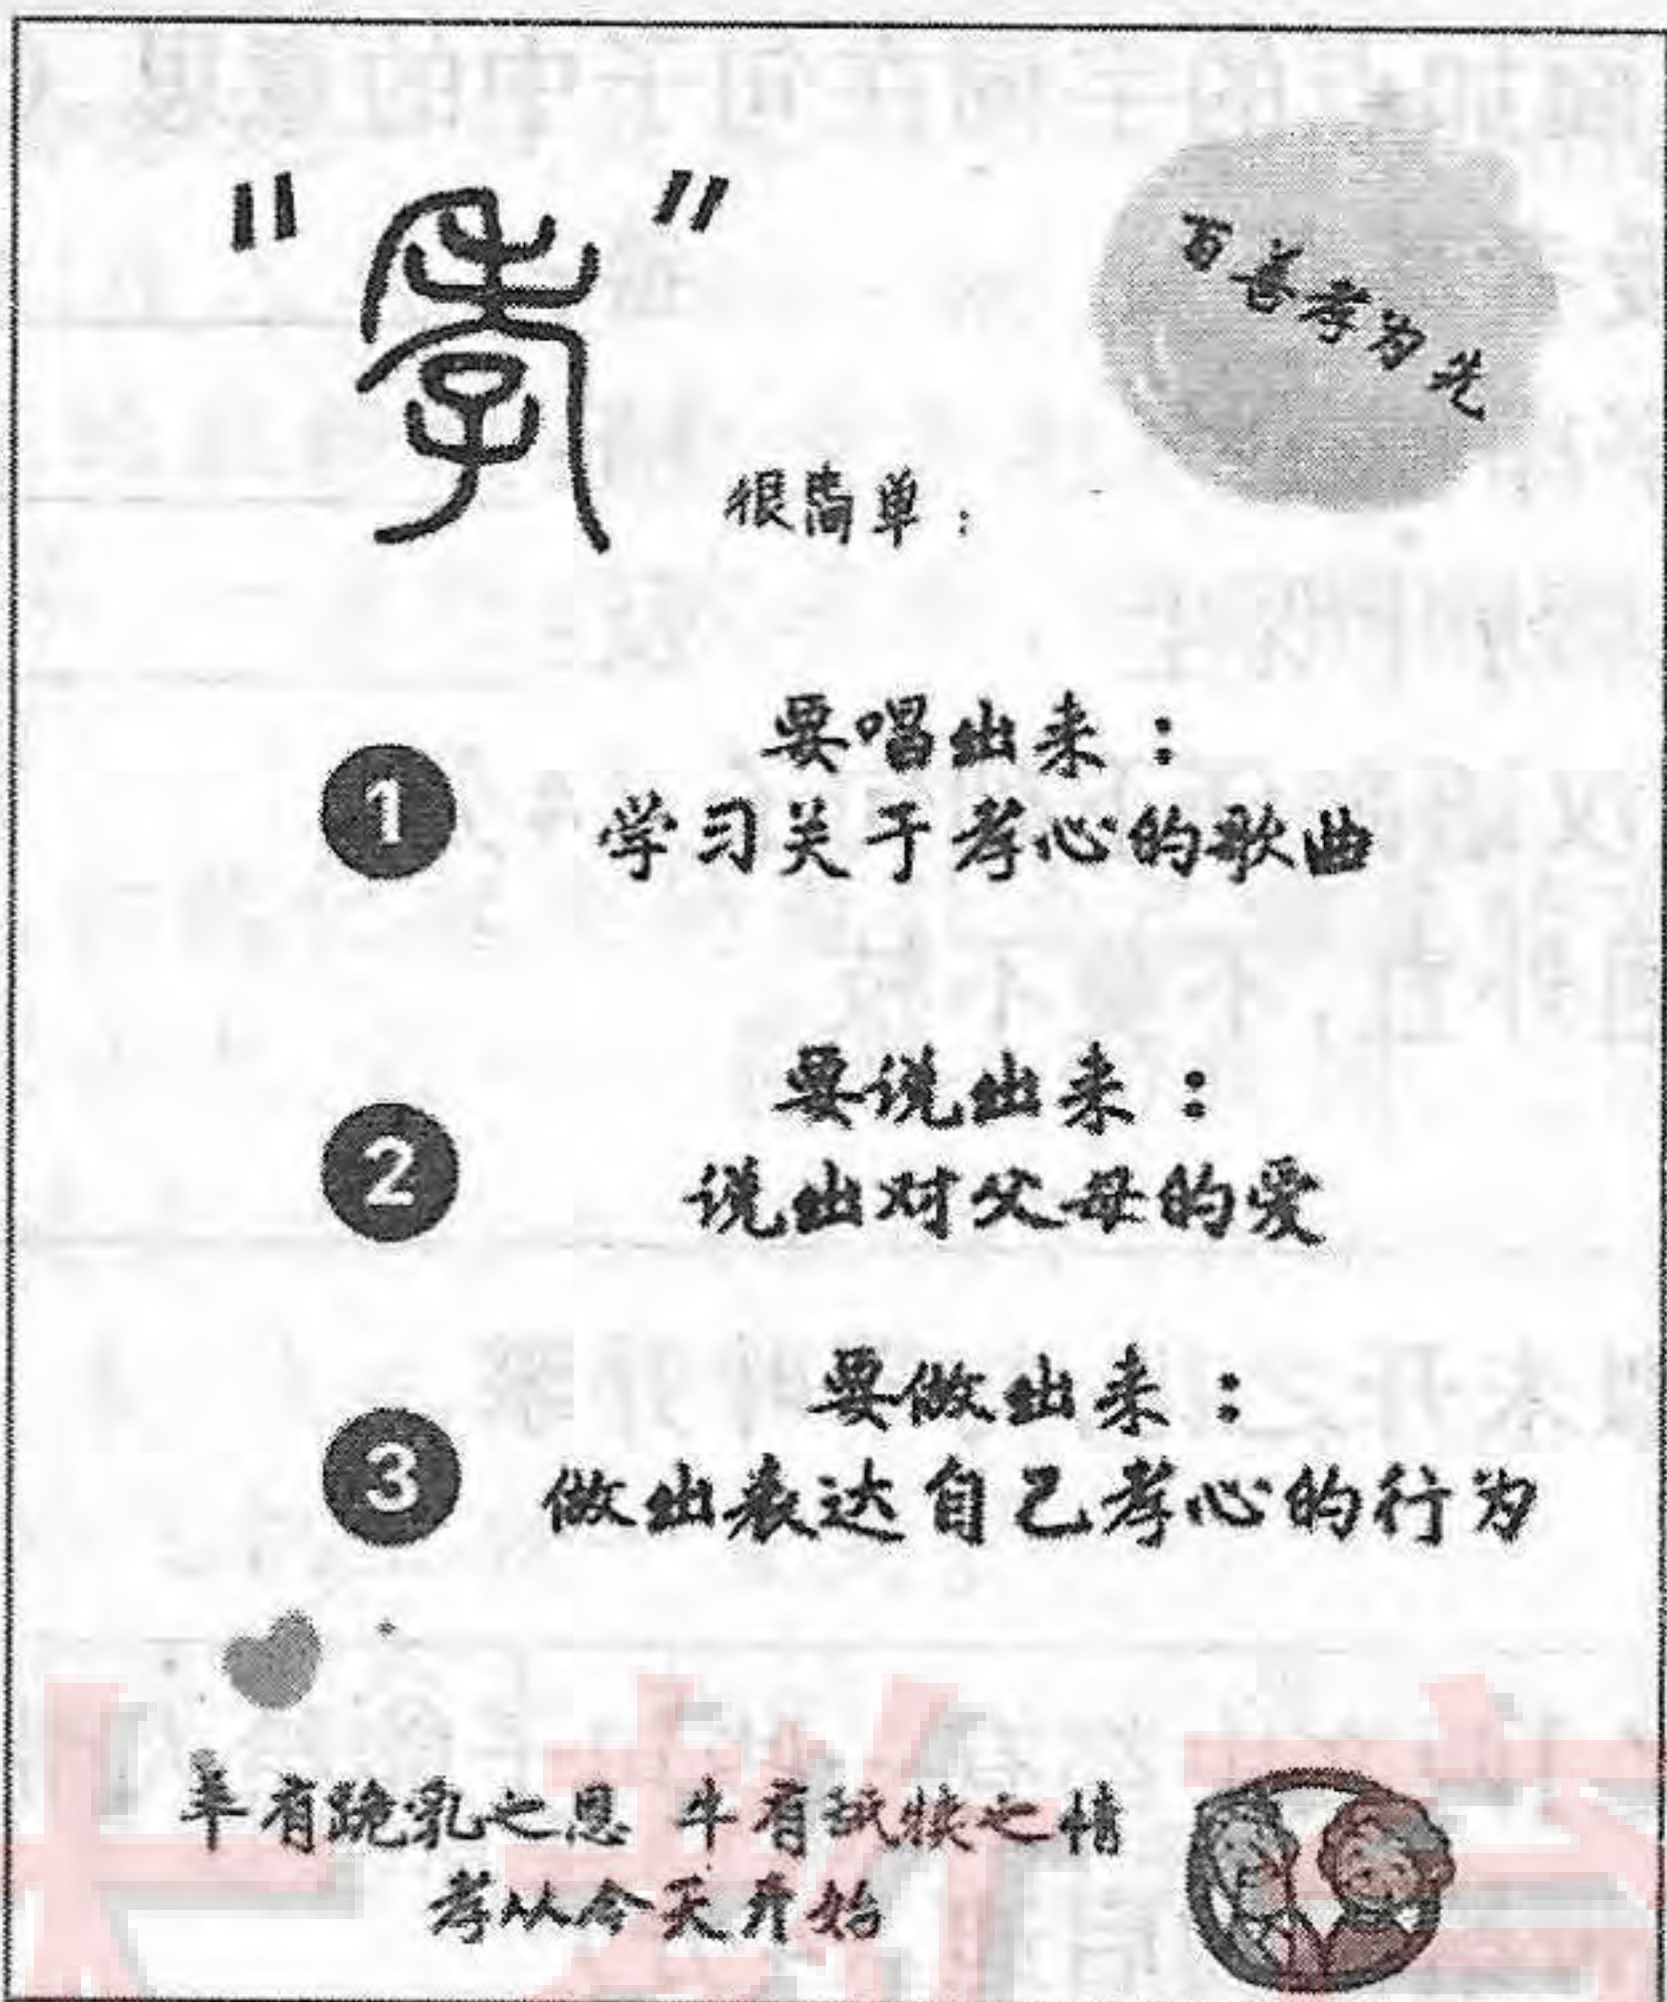 “孝”
百善孝为先
很简单：
1
要唱出来：
学习关于孝心的歌曲
2
要说出来：
说出对父母的爱
3
要做出来：
做出表达自己孝心的行为
羊有跪乳之恩 牛有舐犊之情
孝从今天开始